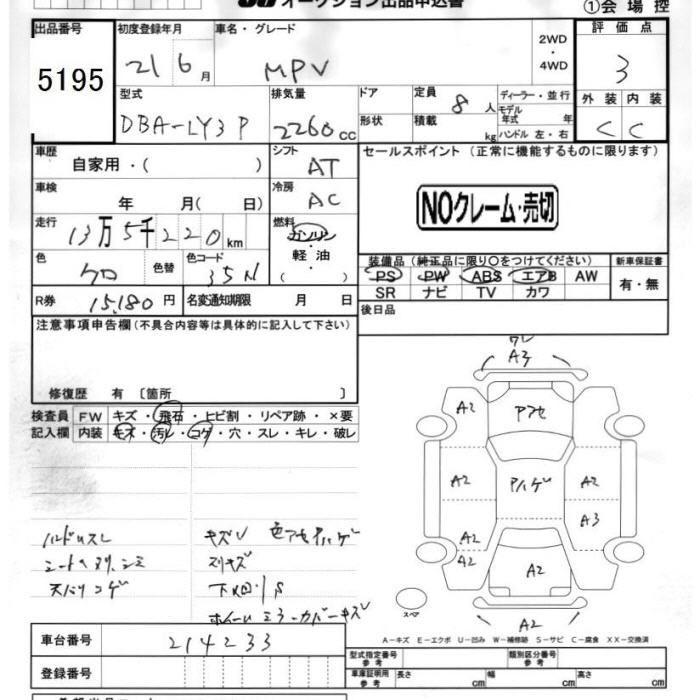 オークション出品申込書
①会場控
出品番号
5195
初度登録年月
21 6月
車名・グレード
MPV
2WD
・
4WD
評価点
3
型式
DBA-LY3P
排気量
2260cc
ドア
形状
定員 8人
積載 kg
ディーラー・並行
モデル
年式 年
ハンドル 左・右
外装 内装
C C
車歴
自家用・( )
シフト
AT
セールスポイント(正常に機能するものに限ります)
車検
年 月( 日)
冷房
AC
NOクレーム・売切
走行
13万5千220km
燃料
ガソリン
・
軽油
・
( )
色
クロ
色替
色コード
35N
装備品(純正品に限り○をつけてください)
PS PW ABS エアB AW
SR ナビ TV カワ
新車保証書
有・無
R券 15,180円
名変通知期限 月 日
後日品
注意事項申告欄(不具合内容等は具体的に記入して下さい)
修復歴 有〔箇所 〕
検査員
記入欄
FW キズ・飛石・ヒビ割・リペア跡・×要
内装 キズ・汚レ・コゲ・穴・スレ・キレ・破レ
A3
A2
アハゲ
A2 A2
A3
A2
A2
A2
A2
スペア
ハンドルスレ
シート
天バリコゲ
キズU 色アセ アハゲ
スリキズ
下回りS
ホイール ミラーカバーキズ
A-キズ E-エクボ U-凹み W-補修跡 S-サビ C-腐食 XX-交換済
車台番号
214233
登録番号
型式指定番号
参考
類別区分番号
参考
車庫証明用
参考
長さ cm
幅 cm
高さ cm